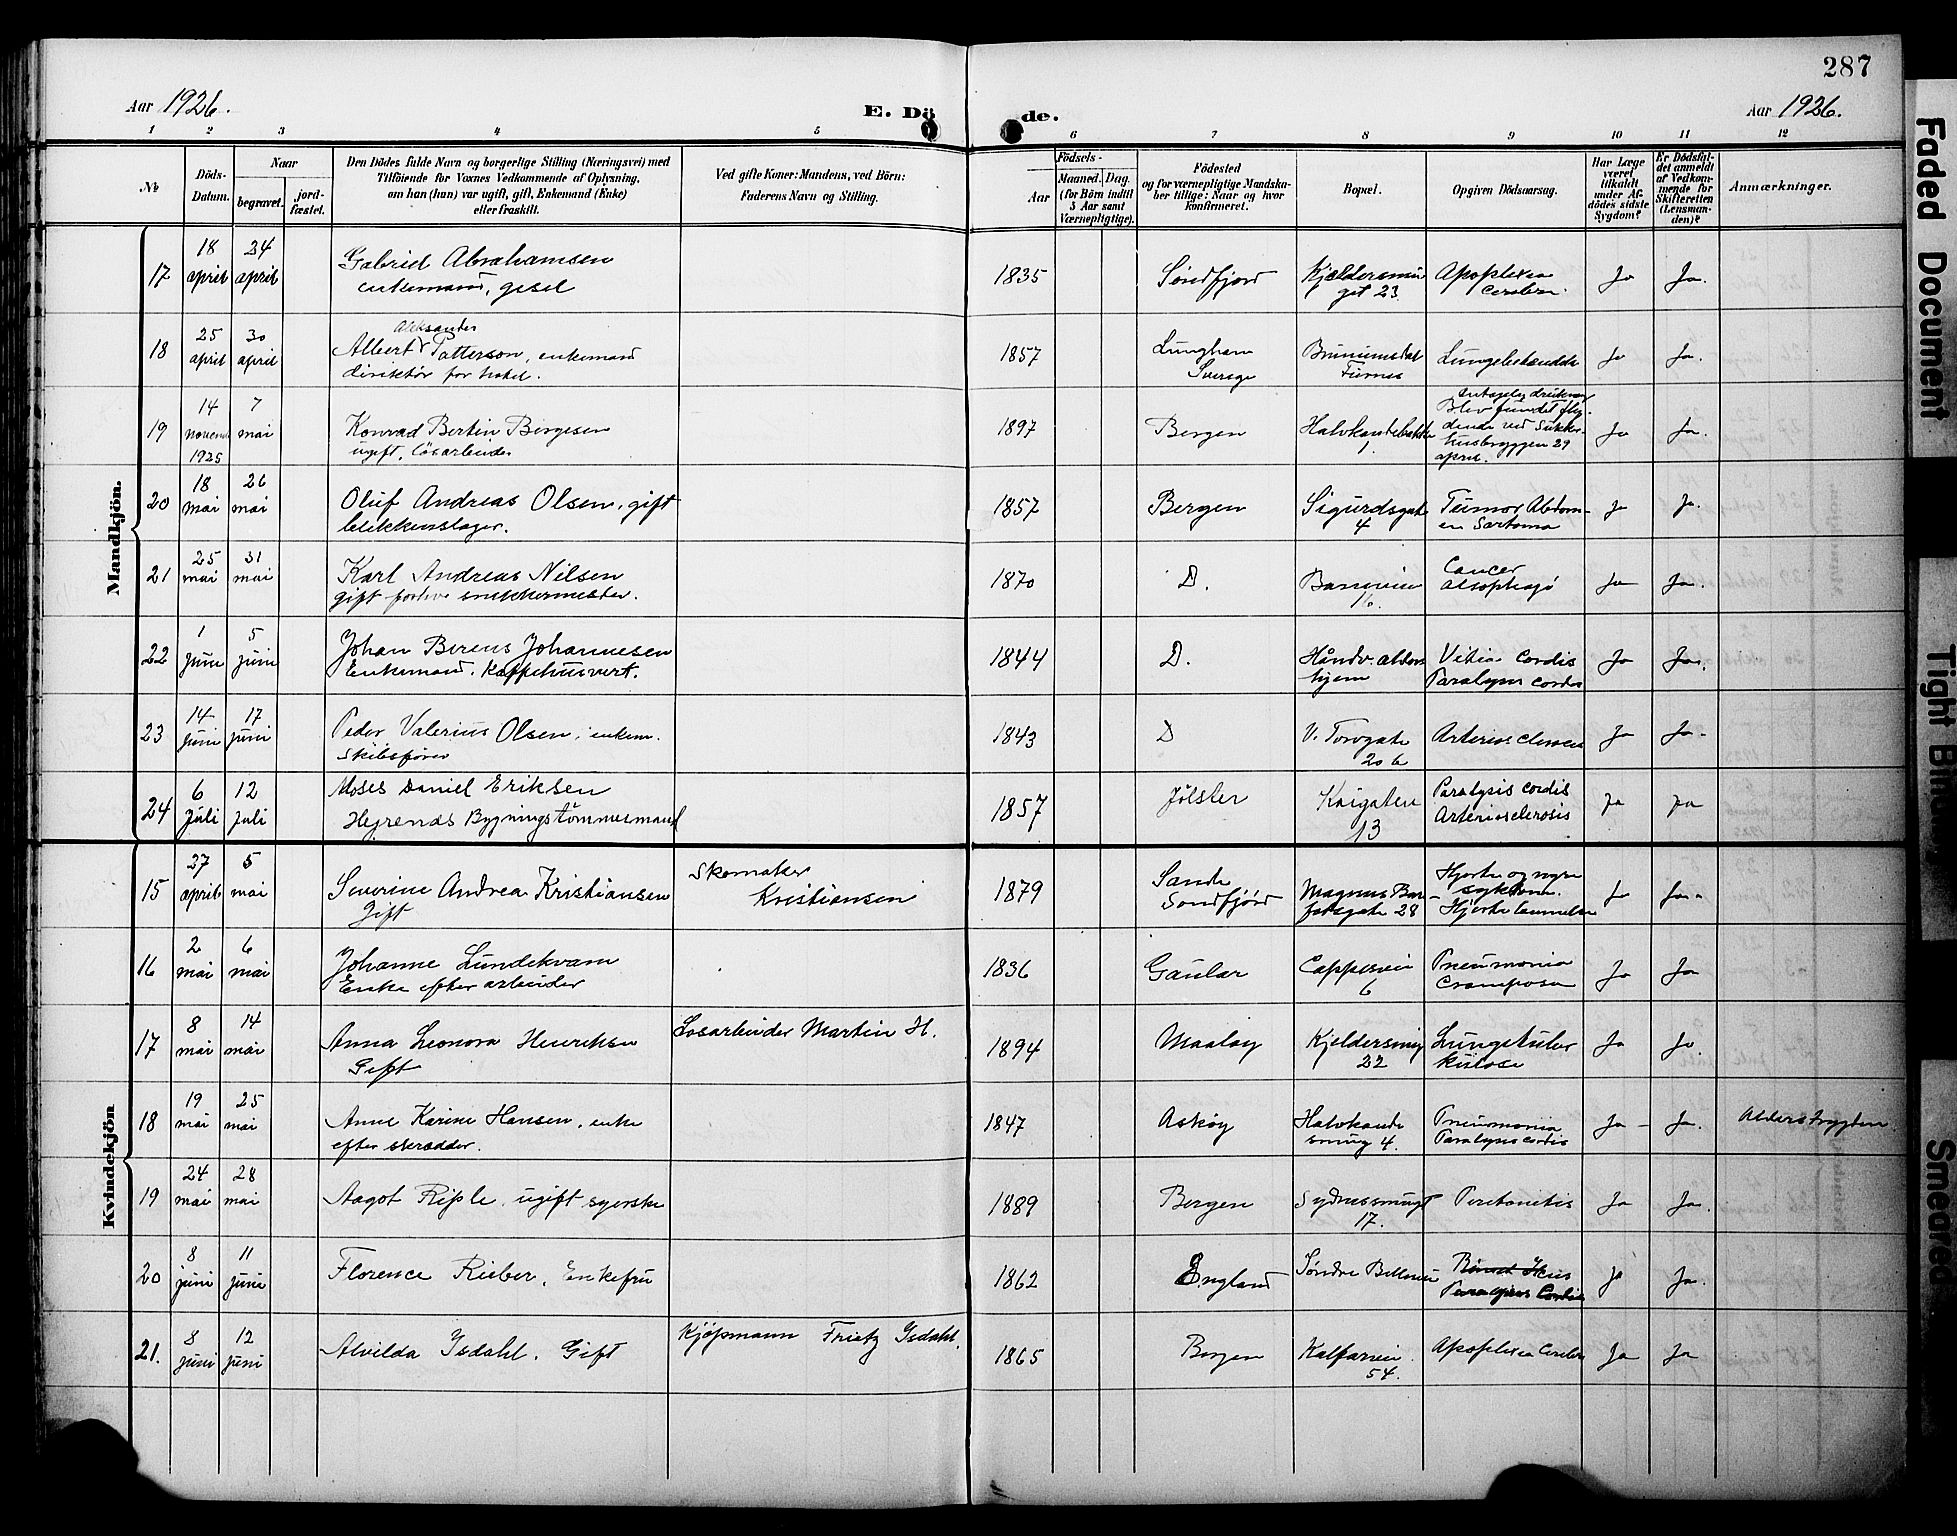 287
Aar 1926.
E. Dö de.
Aar 1926.
1 2 3 4 5 6 7 8 9 10 11 12
No
Döds-Datum.
Naar
begravet.
jord-fæstet.
Den Dödes fulde Navn og borgerlige Stilling (Næringsvei) med
Tilföiende for Voxnes Vedkommende af Oplysning,
om han (hun) var ugift, gift, Enkemand (Enke)
eller fraskilt.
Ved gifte Koner: Mandens, ved Börn:
Faderens Navn og Stilling.
Födsels-
Aar
Maaned. Dag.
(for Börn indtil
3 Aar samt
Værnepligtige).
Födested
og for værnepligtige Mandska-
ber tillige: Naar og hvor
konfirmeret.
Bopæl.
Opgiven Dödsaarsag.
Har Læge
været
tilkaldt
under Af-
dödes sidste
Sygdom?
Er Dödsfal-
det anmeldt
af Vedkom-
mende for
Skifteretten
(Lensman-
den)?
Anmærkninger.
Mandkjön.
17 18 april 24 april Gabriel Abrahamsen 1835 Søndfjord Kjeldersmu Apoplexia Ja Ja.
enkemand, gesel get 23. Cerebri.
18 25 april 30 april Albert Aleksander Patterson, enkemand 1857 Sverige Furnes Ja Ja.
direktör for hotel.
19 14 novem 1925 7 mai Konrad Bertin Børgesen 1897 Bergen Halvkandebakke 1 Antagelig drukning Ja Ja.
ugift. Løsarbeider Blev fundet fly-
dende ved Sukker-
husbryggen 29
april.
20 18 mai 26 mai Oluf Andreas Olsen, gift 1857 Bergen Sigurdsgate Tumor Abdom- Ja Ja.
blikkenslager. 4 en Sarkoma
21 25 mai 31 mai Karl Andreas Nilsen 1870 D. Cancer Ja Ja.
gift snekkermester. oesophagi
22 1 juni 5 juni Johan Berens Johannesen 1844 D. Håndv. alders Vitia Cordis Ja Ja.
Enkemand. Kaffehusvert. hjem Paralysis Cordis
23 14 juni 17 juni Peder Valerius Olsen, enkem. 1843 D V. Torvgate Arteriosclerosis Ja Ja.
Skibsfører 20 b
24 6 Juli 12 juli Moses Daniel Eriksen 1857 Jølster Kaigaten Paralysis cordis Ja Ja
Hejrenæs Bygningstømmermand 13 Arteriosclerosis
Kvindekjön
15 27 april 5 mai Severine Andrea Kristiansen Skomaker Kristiansen 1879 Sande Magnus Bar- Hjerte og nyre Ja Ja.
Gift Søndfjord fotsgate 28 sykdom.
Hjertelammelse
16 2 mai 6 mai Johanne Lundekvam 1836 Gaular Cappesvei Pneumonia Ja Ja
Enke efter arbeider 6 Crouposa
17 8 mai 14 mai Anna Leonora Henriksen Løsarbeider Martin H. 1894 Maaløy Kjeldersmug Lungetuber Ja Ja
Gift 22 kulose
18 19 mai 25 mai Anne Karine Hansen, enke 1847 Askøy Halvkande Pneumonia Ja Ja. Alderstrygden
efter skrædder. smug 4. Paralysis cordis
19 24 mai 28 mai Aagot Riple, ugift syerske 1889 Bergen Sydnessmugt Peritonitis Ja Ja.
17.
20 8 juni 11 juni Florence Rieber, Enkefru 1862 England Søndre Paralysis Cordis Ja Ja.
21. 8 juni 12 juni Alvilda Isdahl. Gift Kjøpmann Isdahl. 1865 Bergen Kalfarvei Apoplexia Cerebri Ja Ja
54.
Faded Document
Tight Binding
Smeared